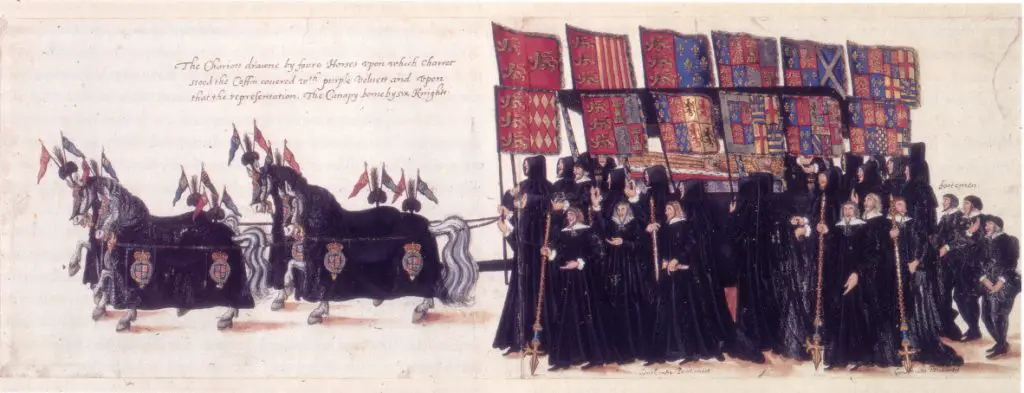 The Chariott drawne by foure Horses vpon which Charret
stood the Coffin couered wth purple Veluett and vpon
that the representation. The Canapy borne by six Knights
footemen